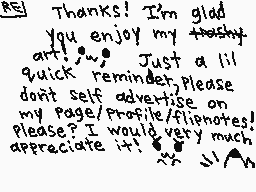 RE
Thanks! I'm glad
you enjoy my trashy
art! ;w; Just a lil
quick reminder, please
don't self advertise on
my page/profile/flipnotes!
please? I would very much
appreciate it!